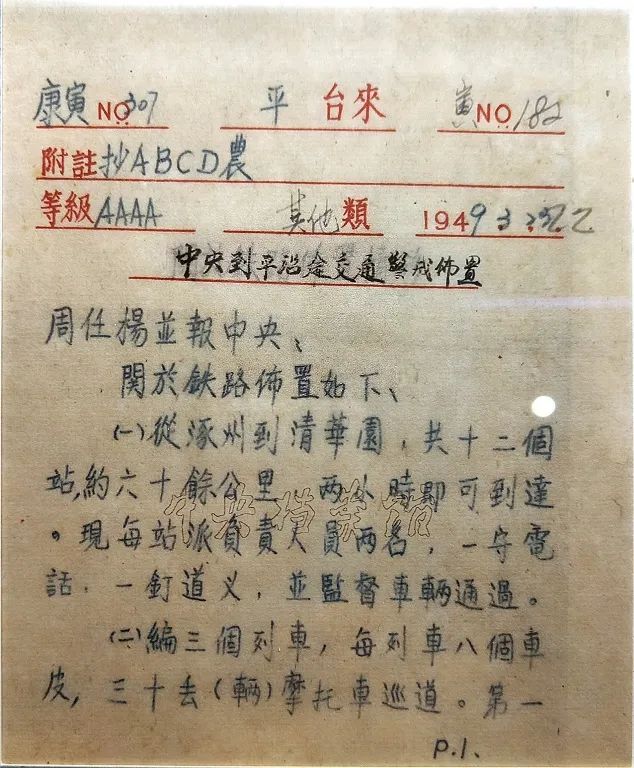 康寅 NO 307 平 台來 寅 NO 182
附註 抄ABCD農
等級 AAAA 其他 類 1949 3
中央到平沿途交通警戒佈置
周任楊並報中央、
關於鉄路佈置如下、
(一)從涿州到清華園，共十二個
站，約六十餘公里，两小時即可到達
。現每站派負責人員两名，一守電
話，一釘道义，並監督車輛通過。
(二)編三個列車，每列車八個車
皮，三十去(輛)摩托車巡道。第一
P.1.
中央档案馆